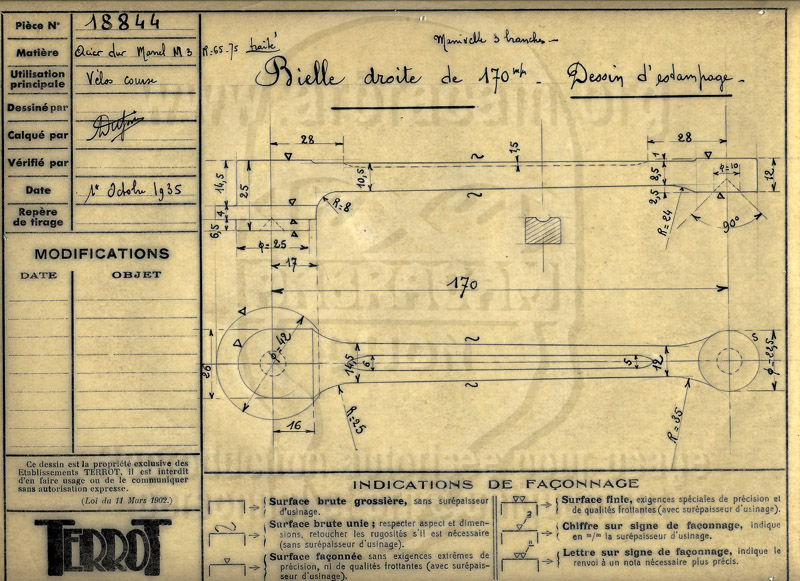 Pièce N° 18844
Matière Acier dur Manel M3 R=65-75 traité
Utilisation
principale Vélos course
Dessiné par
Calqué par
Vérifié par
Date 1er Octobre 1935
Repère
de tirage
MODIFICATIONS
DATE OBJET
Manivelle 3 branches
Bielle droite de 170 m/m - Dessin d'estampage -
28
1,5
28
14,5
25
10,5
1
8,5
2,5
φ=10
12
4
6,5
R=8
R=24
90°
φ=25
17
170
φ=42
26
14,5
6
5
12
S
φ=22,5
R=25
R=35
16
Ce dessin est la propriété exclusive des
Etablissements TERROT, il est interdit
d'en faire usage ou de le communiquer
sans autorisation expresse.
(Loi du 11 Mars 1902.)
TERROT
INDICATIONS DE FAÇONNAGE
Surface brute grossière, sans surépaisseur
d'usinage.
Surface brute unie ; respecter aspect et dimen-
sions, retoucher les rugosités s'il est nécessaire
(sans surépaisseur d'usinage).
Surface façonnée sans exigences extrêmes de
précision, ni de qualités frottantes (avec surépais-
seur d'usinage).
Surface finie, exigences spéciales de précision et
de qualités frottantes (avec surépaisseur d'usinage).
Chiffre sur signe de façonnage, indique
en m/m la surépaisseur d'usinage.
Lettre sur signe de façonnage, indique le
renvoi à un nota nécessaire plus précis.